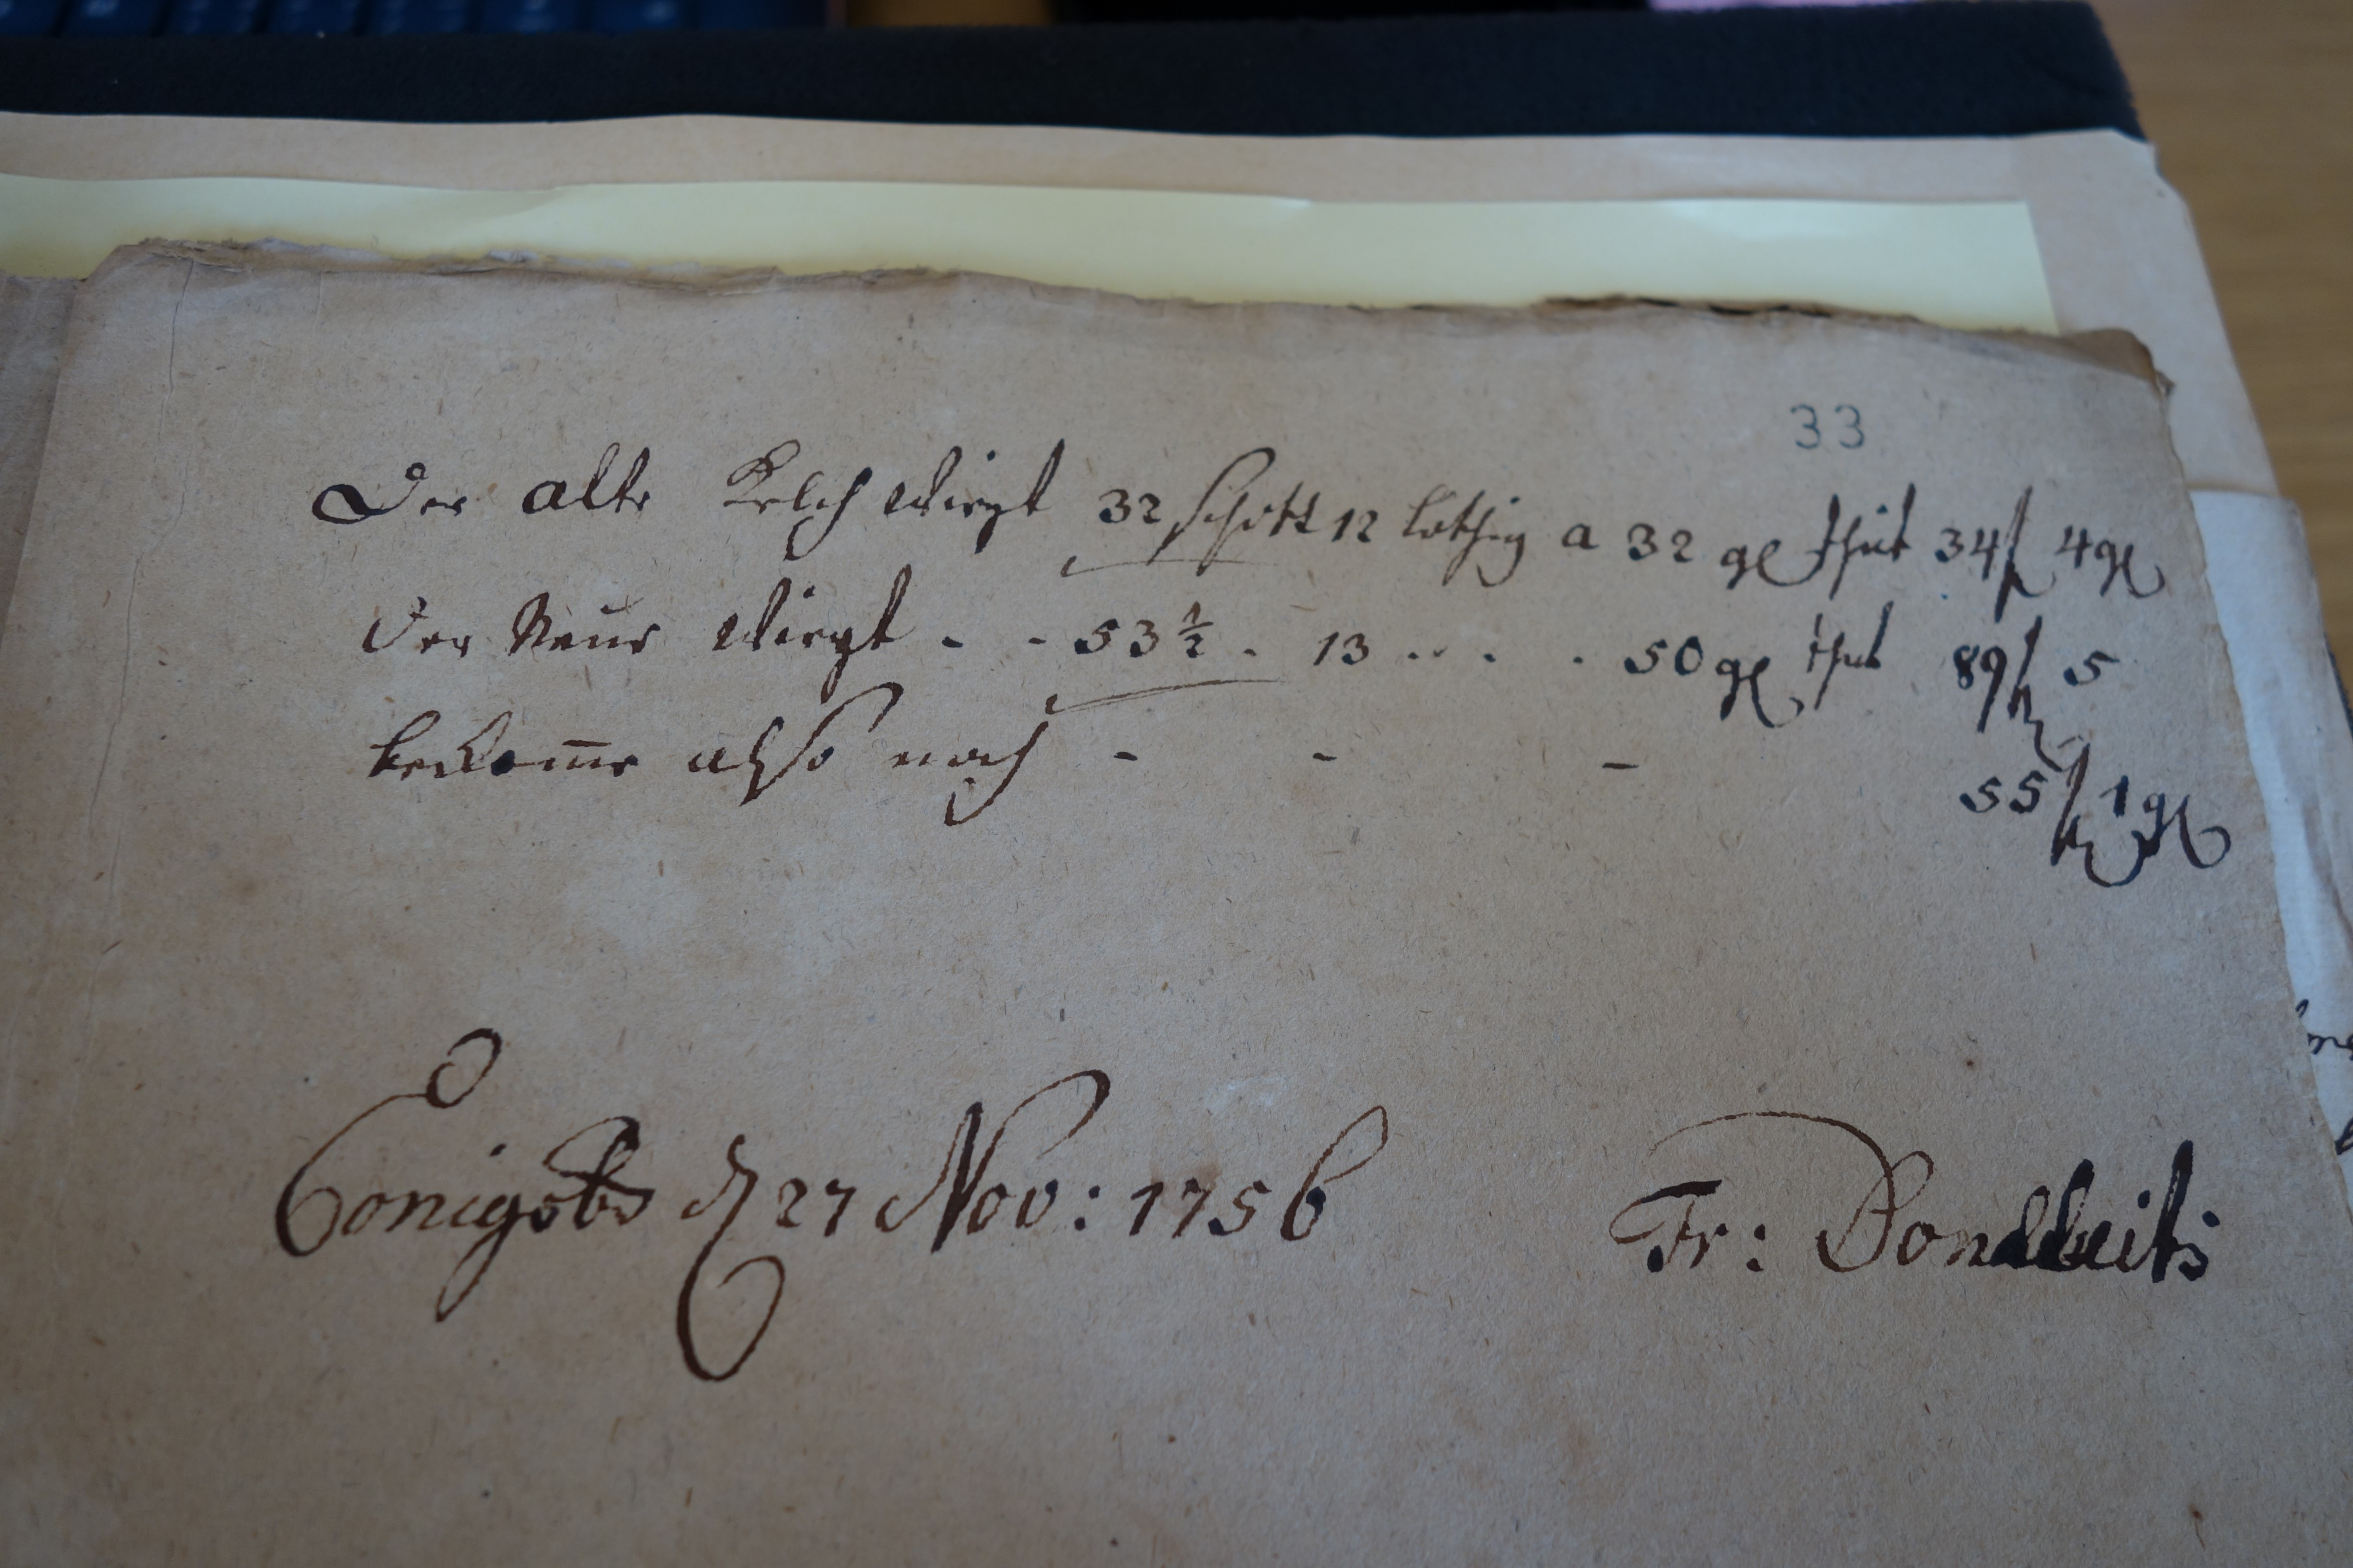 33
Der alte Kelch Wiegt 32 Schott 12 löthig a 32 gl thut 34 f 4 gl
der Neue Wiegt - - 53 ½ . 13 .. . . 50 gl thut 89 f 5
bekomme also noch - - - 55 f 1 gl
Königsb d 27 Nov: 1756 Fr: